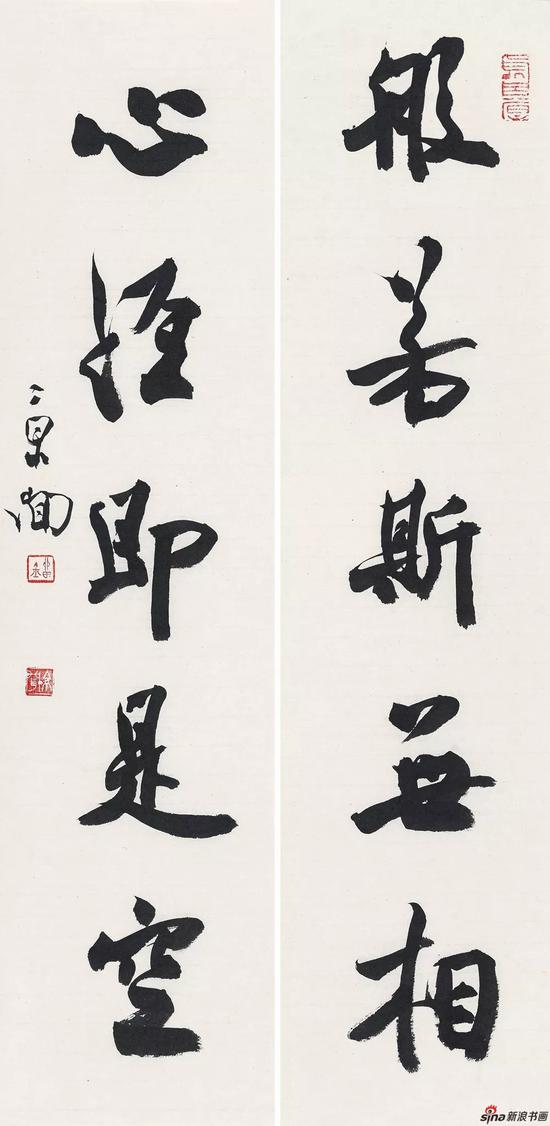 般若斯無相
心经即是空
sina新浪书画